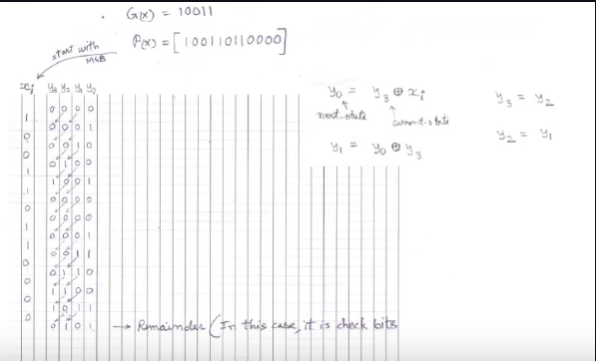 G(x) = 10011
P(x) = [100110110000]
start with
MSB
xᵢ y₃ y₂ y₁ y₀
0 0 0 0
1
0 0 0 1
0
0 0 1 0
0
0 1 0 0
1
1 0 0 1
1
0 0 0 0
0
0 0 0 0
1
0 0 0 1
1
0 0 1 1
0
0 1 1 0
0
1 1 0 0
0
1 0 1 1
0
0 1 0 1 → Remainder (In this case, it is check bits
y₀ = y₃ ⊕ xᵢ
next-state current-state
y₁ = y₀ ⊕ y₃
y₃ = y₂
y₂ = y₁